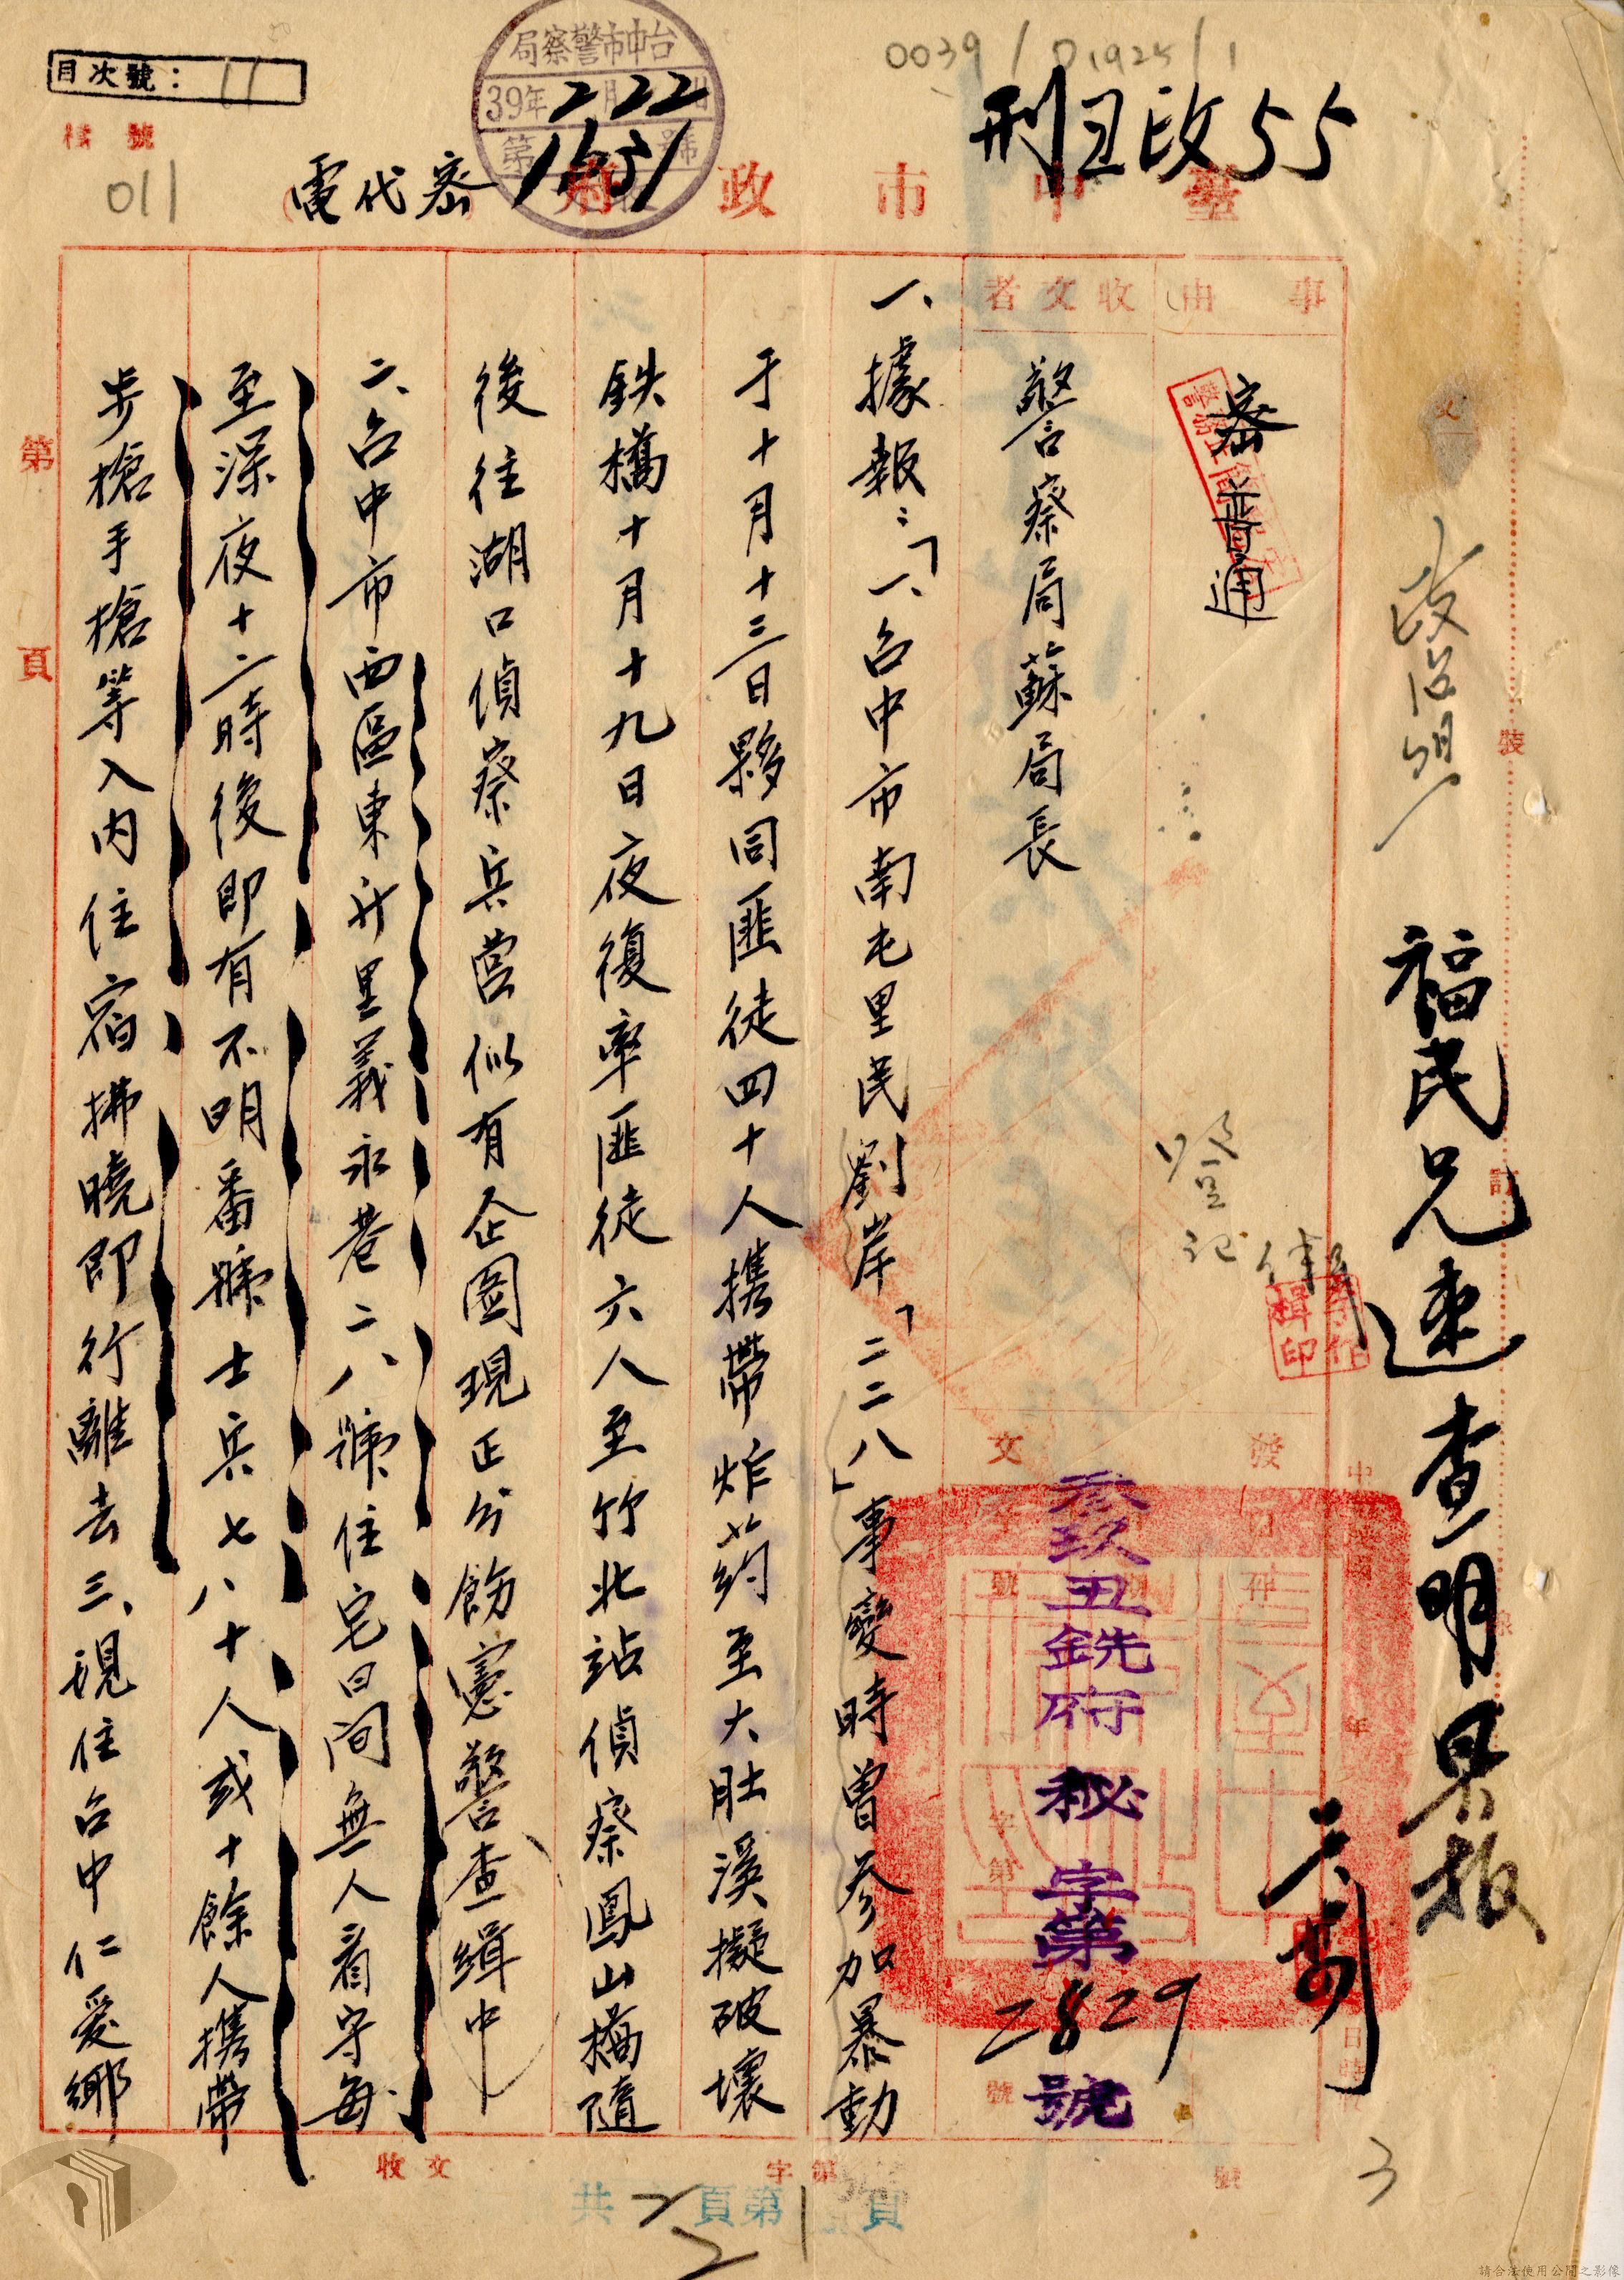 目次號：11
0039/01925/1
台中市警察局
39年2月22日
第1651號
刑丑政55
檔號
011
臺中市政府
密代電
福民兄速查明具報
政治組
事由
收文者
密
普通
警察局蘇局長
登記
發文
參玖丑銑府秘字第2829號
一、據報：「一、台中市南屯里民劉岸「二二八」事變時曾参加暴動
于十月十三日夥同匪徒四十人携帶炸葯至大肚溪擬破壞
鉄橋十月十九日夜復率匪徒六人至竹北站偵察鳳山橋隨
後往湖口偵察兵营似有企圖現正分飭憲警查緝中
二、台中市西區東升里義永巷二八號住宅日间無人看守每
至深夜十二時後即有不明番號士兵七八十人或十餘人携帶
步槍手槍等入内住宿拂曉即行離去三、現住台中仁爱鄉
第頁
裝
訂
線
收文
字第
號
共2頁第1頁
2
3
請合法使用公開之影像